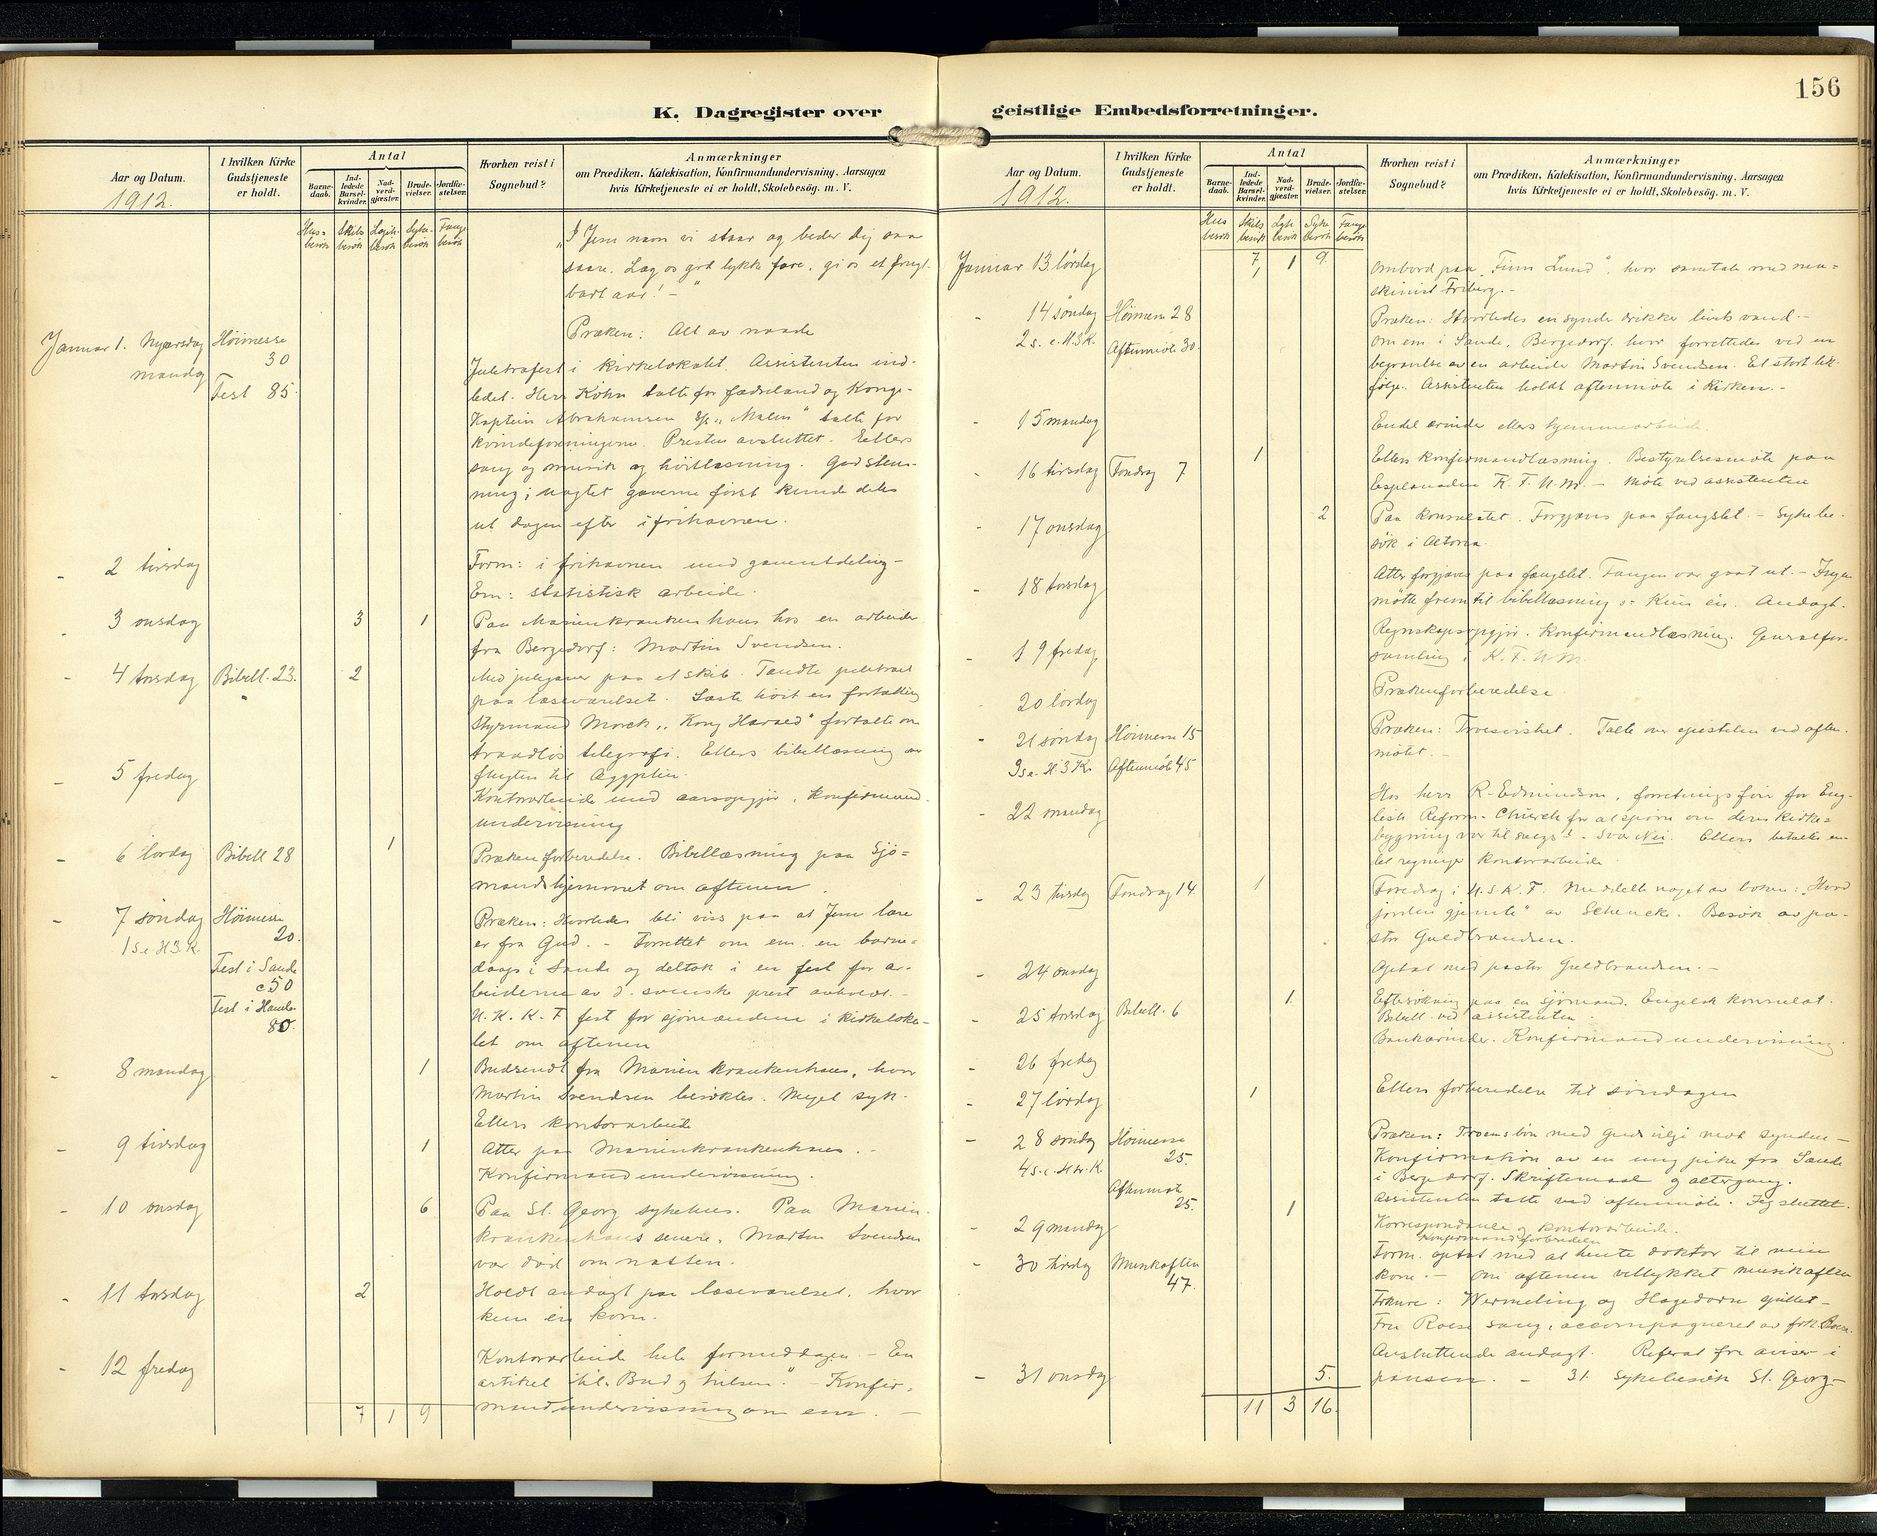 156
K. Dagregister over geistlige Embedsforretninger.
Aar og Datum.
1912.
I hvilken Kirke Gudstjeneste er holdt.
Antal
Barnedaab.
Indledede Barselkvinder.
Nadverdgjæster.
Brudevielser.
Jordfæstelser.
Hvorhen reist i Sognebud?
Anmærkninger
om Prædiken, Katekisation, Konfirmandundervisning, Aarsagen
hvis Kirketjeneste ei er holdt, Skolebesøg. m. V.
Husbesøk Skibsbesøk Logihbesøk Sykebesøk Fangebesøk
"I Jesu navn vi staar og beder dig saa
saare. Læg os god lykke fare, gi os et frugt-
bart aar! - "
Januar 1. Nyaarsdag Høimesse
mandag 30
Fest 85.
Præken: Alt av naade
Juletræfest i kirkelokalet. Assistenten ind-
ledet. Herr Köhn talte for fædreland og Konge-
Kaptein Abrahamsen S/S "Malm" talte for
kvindeforeningerne. Presten avsluttet. Ellers
sang og musik og høitlæsning. God stem-
ning; uagtet gaverne først kunde deles
ut dagen efter i frihavnen.
- 2 tirsdag
Form: i frihavnen med gaveutdeling -
Em: statistisk arbeide.
- 3 onsdag 3 1
Paa Marienkrankenhaus hos en arbeider
fra Bergedorf: Martin Svendsen.
- 4 torsdag Bibell. 23. 2
Med julegaver paa et skib. Tændte juletræet
paa læseværelset. Læste høit en fortælling
Styrmand Morck, "Kong Harald" fortalte om
traadløs telegrafi. Ellers bibellæsning av
flugten til Ægypten.
- 5 fredag
Kontorarbeide med aarsopgjør. Konfirmand-
undervisning
- 6 lørdag Bibell 28 1
Prækenforberedelse. Bibellæsning paa Sjø-
mandshjemmet om aftenen.
- 7 søndag Høimesse
1 S. e. H. 3. K. 20.
Fest i Sande
c 50
Fest i Hamb.
80.
Præken: Hvorledes bli viss paa at Jesu lære
er fra Gud. - Forrettet om em. en barne-
daap i Sande og deltok i en fest for ar-
beiderne av d. svenske prest avholdt. -
U. K. K. F fest for sjømændene i kirkeloka-
let om aftenen
- 8 mandag 1
Budsendt fra Marienkrankenhaus, hvor
Martin Svendsen besøktes. Meget syk.
Ellers kontorarbeide
- 9 tirsdag 1
Atter paa Marienkrankenhaus. -
Konfirmandundervisning.
- 10 onsdag 6
Paa St. Georg sykehus. Paa Marien-
krankenhaus senere. Martin Svendsen
var død om natten.
- 11 torsdag 2
Holdt andagt paa læseværelset, hvor
kun én kom.
- 12 fredag
Kontorarbeide hele formiddagen. - En
artikel til "Bud og hilsen." - Konfir-
mandundervisning om em. -
7 1 9
Aar og Datum.
1912.
I hvilken Kirke Gudstjeneste er holdt.
Antal
Barnedaab.
Indledede Barselkvinder.
Nadverdgjæster.
Brudevielser.
Jordfæstelser.
Hvorhen reist i Sognebud?
Anmærkninger
om Prædiken, Katekisation, Konfirmandundervisning, Aarsagen
hvis Kirketjeneste ei er holdt, Skolebesøg. m. V.
Husbesøk Skibsbesøk Lgihbesøk Sykebesøk Fangebesøk
7 1 9
Januar 13. lørdag 1
Ombord paa "Finn Lund", hvor samtale med ma-
skinist Friberg. -
- 14 søndag Høimesse 28
2 s. e. H.3.K. Aftenmøte 30.
Præken: Hvorledes en synder drikker livets vand. -
Om em i Sande, Bergedorf, hvor forrettedes ved en
begravelse av en arbeider Martin Svendsen. Et stort lik-
følge. Assistenten holdt aftenmøte i Kirken. -
- 15 mandag
Endel ærinder ellers hjemmearbeide.
- 16 tirsdag Foredrag 7 1
Ellers konfirmandlæsning. Bestyrelsesmøte paa
Esplanaden K. F. U. M. - Møte ved assistenten
- 17 onsdag 2
Paa konsulatet. Forgjæves paa fængslet - Sykebe-
søk i Altona.
- 18 torsdag
Atter forgjæves paa fængslet. Fangen var gaat ut. - Ingen
møtte frem til bibellæsning o: Kun én. Andagt.
- 19 fredag
Regnskapsopgjør. Konfirmandlæsning. Generalfor-
samling i K. F. U. M.
- 20 lørdag
Prækenforberedelse
- 21 søndag Høimesse 15
3 s. e. H 3 K. Aftenmøte 45
Præken: Troesvishet. Talte over epistelen ved aften-
møtet -
- 22 mandag
Hos herr R. Edmindson, forretningsfører for Eng-
lish Reform. Church for at spørre om deres kirke-
bygning var til salgs? - Svar Nei. Ellers betalte en
del regninger kontorarbeide.
- 23 tirsdag Foredrag 14. 1
Foredrag i U. S. K. F. Meddelte noget av boken: "Hvad
jorden gjemte" av Schenck. Besøk av pa-
stor Guldbrandsen.
- 24 onsdag
Optat med pastor Guldbrandsen. -
- 25 torsdag Bibell. 6 1
Eftersøkning paa en sjømand. Engelsk konsulat.
Bibell. ved assistenten.
- 26 fredag
Bankærinder. Konfirmandundervisning.
- 27 lørdag 1
Ellers forberedelse til søndagen
- 28 søndag Høimesse
25.
4 s. e. H tr. K. Aftenmøte
25.
Præken: Troens bøn med Guds vilje mot synden -
Konfirmation av en ung pike fra Sande
i Bergedorf. Skriftemaal og altergang.
Assistenten talte ved aftenmøte. Jeg sluttet.
- 29 mandag 1
Korrespondanse og kontorarbeide.
Konfirmandforberedelse
- 30 tirsdag Musikaften
47.
Form. optat med at hente doktor til min
kone. - Om aftenen vellykket musikaften
Frknere: Wermeling og Hagedorn spillet -
Fru Roese sang, accompagneret av frk. Roese.
Avsluttende andagt. Referat fre aviser i
pausen. - 31. Sykebesøk St. Georg -
- 31 onsdag 5.
11 3 16.